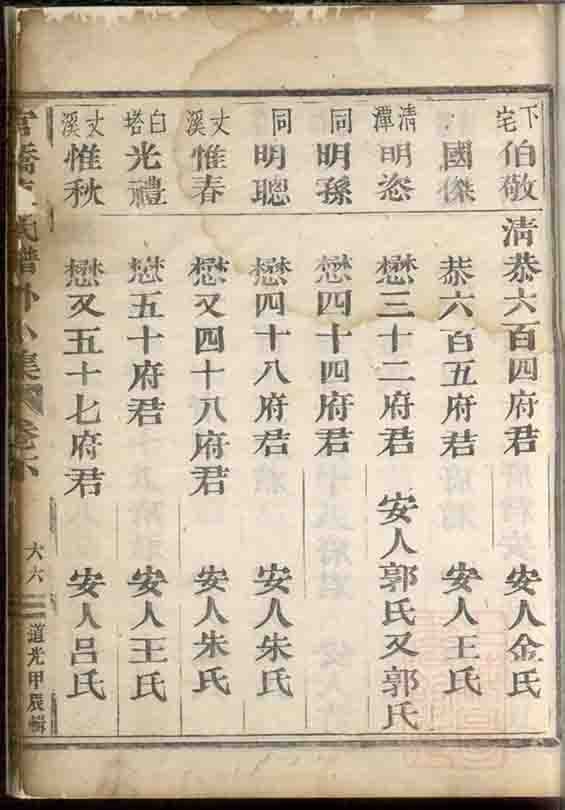 下宅伯敬 清恭六百四府君 安人金氏
國傑 恭六百五府君 安人王氏
清潭明忞 懋三十二府君 安人郭氏又郭氏
同明孫 懋四十四府君
同明聰 懋四十八府君 安人朱氏
丈溪惟春 懋又四十八府君 安人朱氏
白塔光禮 懋五十府君 安人王氏
丈溪惟秋 懋又五十七府君 安人呂氏
氏譜外小集 六六 道光甲辰輯